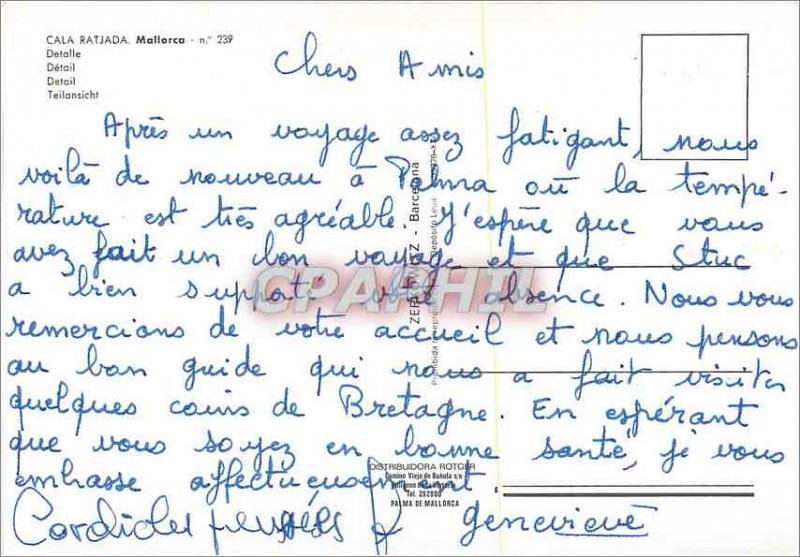 CALA RATJADA. Mallorca - n.° 239
Detalle
Détail
Detail
Teilansicht
Chers Amis
Après un voyage assez fatigant, nous
voilà de nouveau à Palma où la tempé-
rature est très agréable. J'espère que vous
avez fait un bon voyage et que Stuc
a bien supporté votre absence. Nous vous
remercions de votre accueil et nous pensons
au bon guide qui nous a fait visiter
quelques coins de Bretagne. En espérant
que vous soyez en bonne santé, je vous
embrasse affectueusement.
Cordiales pensées
Geneviève
CPAPHIL
- Barcelona
Depósito Legal
Prohibida
DISTRIBUIDORA ROTGER
Camino Viejo de Buñola s/n
Tel. 252900
PALMA DE MALLORCA